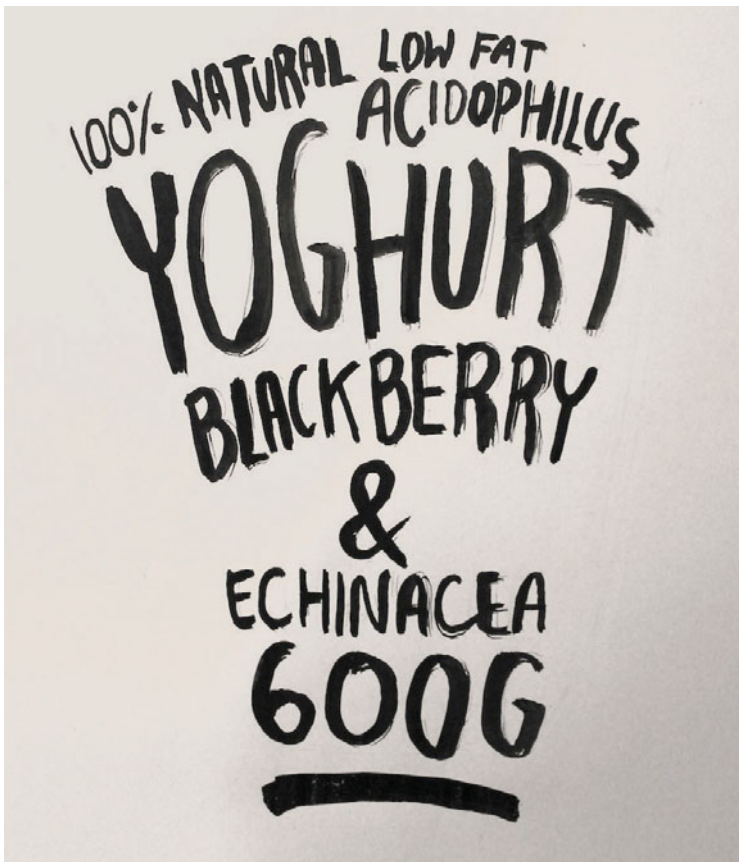 100% NATURAL LOW FAT
ACIDOPHILUS
YOGHURT
BLACKBERRY
&
ECHINACEA
600G